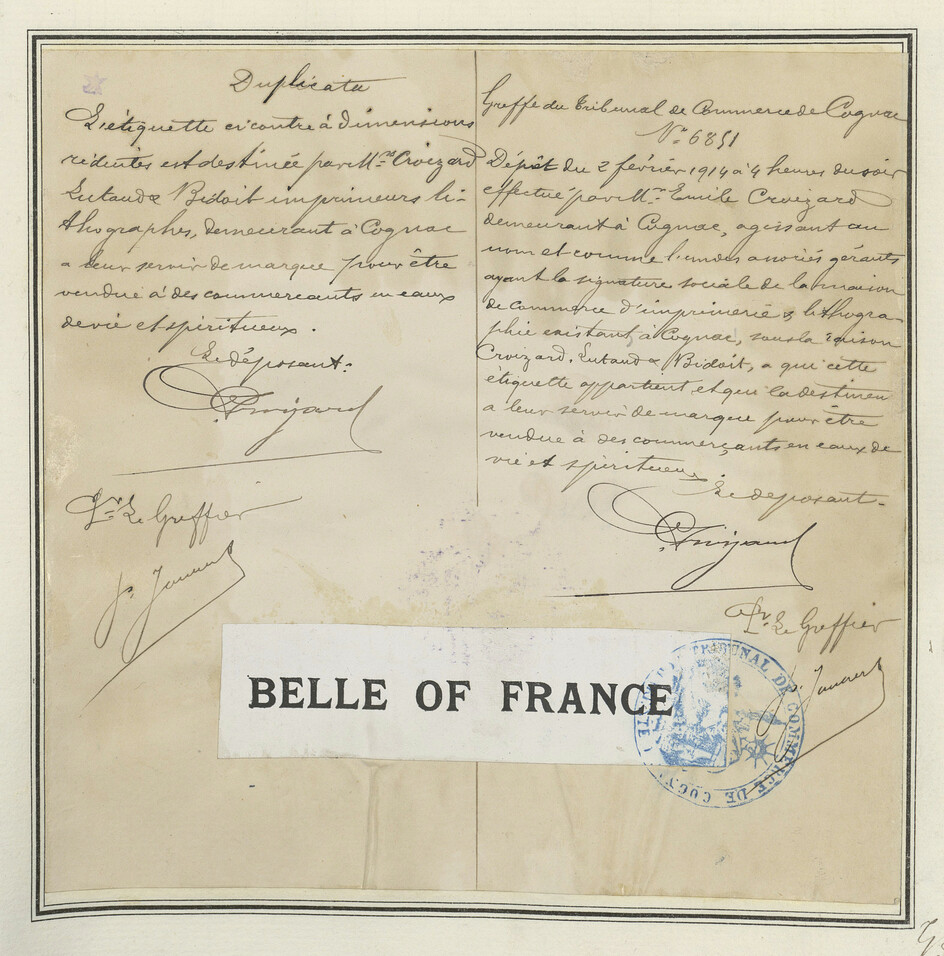 Duplicata
L'étiquette ci contre à dimensions
réduites est destinée par Mrs Croizard
Lutaud & Bidoit imprimeurs li-
thographes, demeurant à Cognac
a leur servir de marque pour être
vendue à des commercants en eaux
de vie et spiritueux.
Le déposant.
Croizard
Pr. Le Greffier
Greffe du Tribunal de Commerce de Cognac
No 6851
Dépôt du 2 février 1914 à 4 heures du soir
effectué par Mr. Emile Croizard
demeurant à Cognac, agissant au
nom et comme l'un des associés gérants
ayant la signature sociale de la maison
de commerce d'imprimerie & lithogra-
phie existant à Cognac, sous la raison
Croizard, Lutaud & Bidoit, a qui cette
étiquette appartient et qui la destinen
a leur servir de marque pour être
vendue à des commerçants en eaux de
vie et spiritueux
Le deposant.
Croizard
Pr. Le Greffier
BELLE OF FRANCE
TRIBUNAL DE COMMERCE DE COGN